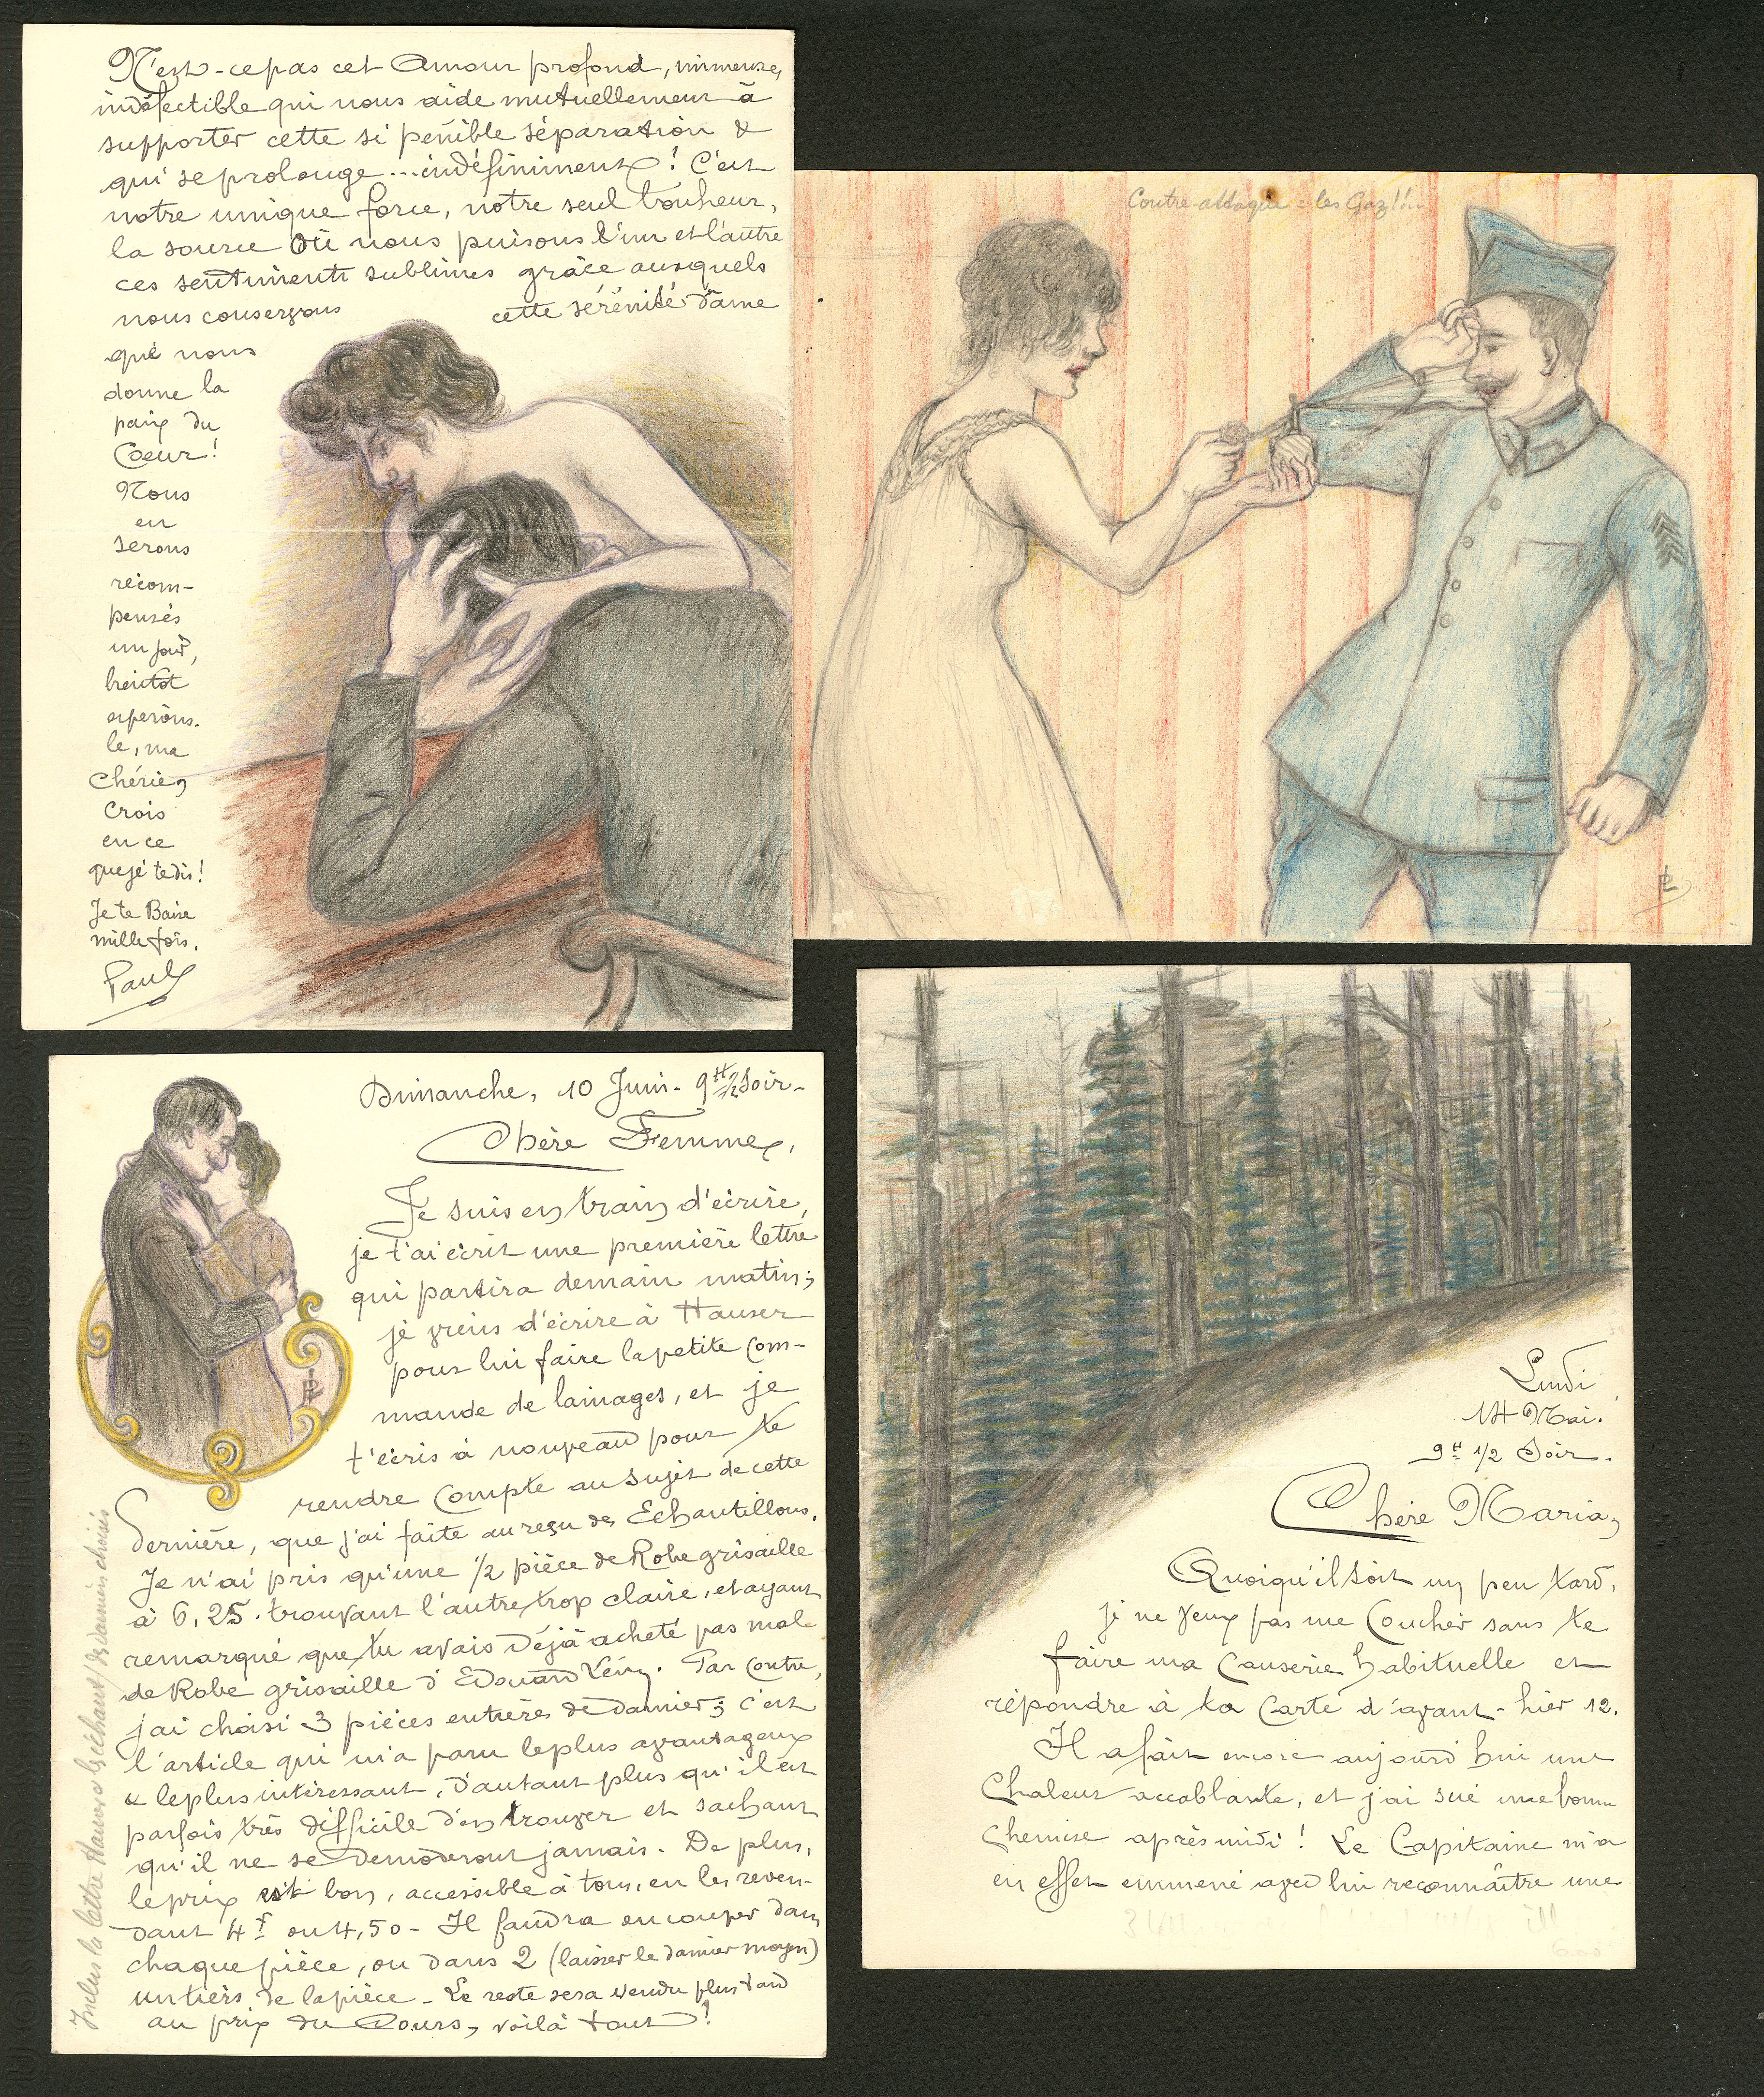 N'est-ce pas cet Amour profond, immense,
indéfectible qui nous aide mutuellement à
supporter cette si pénible séparation &
qui se prolonge...indéfiniment! C'est
notre unique force, notre seul bonheur,
la source où nous puisons l'un et l'autre
ces sentiments sublimes grâce auxquels
nous conservons cette sérénité d'âme
que nous
donne la
paix du
Coeur!
Nous
en
serons
récom-
pensés
un jour,
bientôt
espérons-
le, ma
Chérie,
crois
en ce
que je te dis!
Je te Baise
mille fois.
Paul
Contre-attaque = les Gaz!!
PL
Dimanche, 10 Juin - 9H 1/2 Soir -
Chère Femme,
Je suis en train d'écrire,
je t'ai écrit une première lettre
qui partira demain matin;
je viens d'écrire à Hauser
pour lui faire la petite Com-
mande de lainages, et je
t'écris à nouveau pour te
rendre Compte au sujet de cette
dernière, que j'ai faite au reçu des Echantillons.
Je n'ai pris qu'une 1/2 pièce de Robe grisaille
à 6,25. trouvant l'autre trop claire, et ayant
remarqué que tu avais déjà acheté pas mal
de Robe grisaille d'Edouard Lévy. Par Contre,
j'ai choisi 3 pièces entières de damier; c'est
l'article qui m'a paru le plus avantageux
& le plus intéressant, d'autant plus qu'il est
parfois très difficile d'en trouver et sachant
qu'il ne se démoderont jamais. De plus,
le prix est bon, accessible à tous, en les reven-
dant 4f ou 4,50 - Il faudra en couper dans
chaque pièce, ou dans 2 (laisser le damier moyen)
un tiers de la pièce - Le reste sera vendu plus tard
au prix du Cours, voilà tout!
Inclus la lettre Hauser & échant. des damiers choisis
Lundi
14 Mai.
9H 1/2 Soir.
Chère Maria,
Quoiqu'il soit un peu tard,
je ne veux pas me Coucher sans te
faire ma Causerie habituelle et
répondre à ta Carte d'avant-hier 12.
Il a fait encore aujourd'hui une
Chaleur accablante, et j'ai sué une bonne
Chemise après midi! Le Capitaine m'a
en effet emmené avec lui reconnaître une